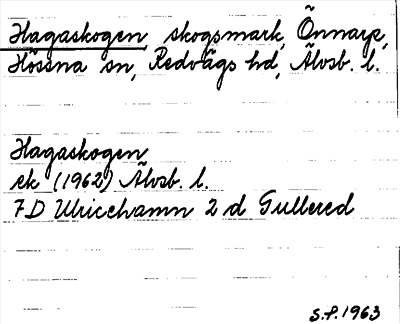 Hagaskogen, skogsmark, Önnarp,
Hössna sn, Redvägs hd, Älvsb. l.
Hagaskogen
ek (1962) Älvsb. l.
7D Ulricehamn 2 d Gullered
S.F. 1963